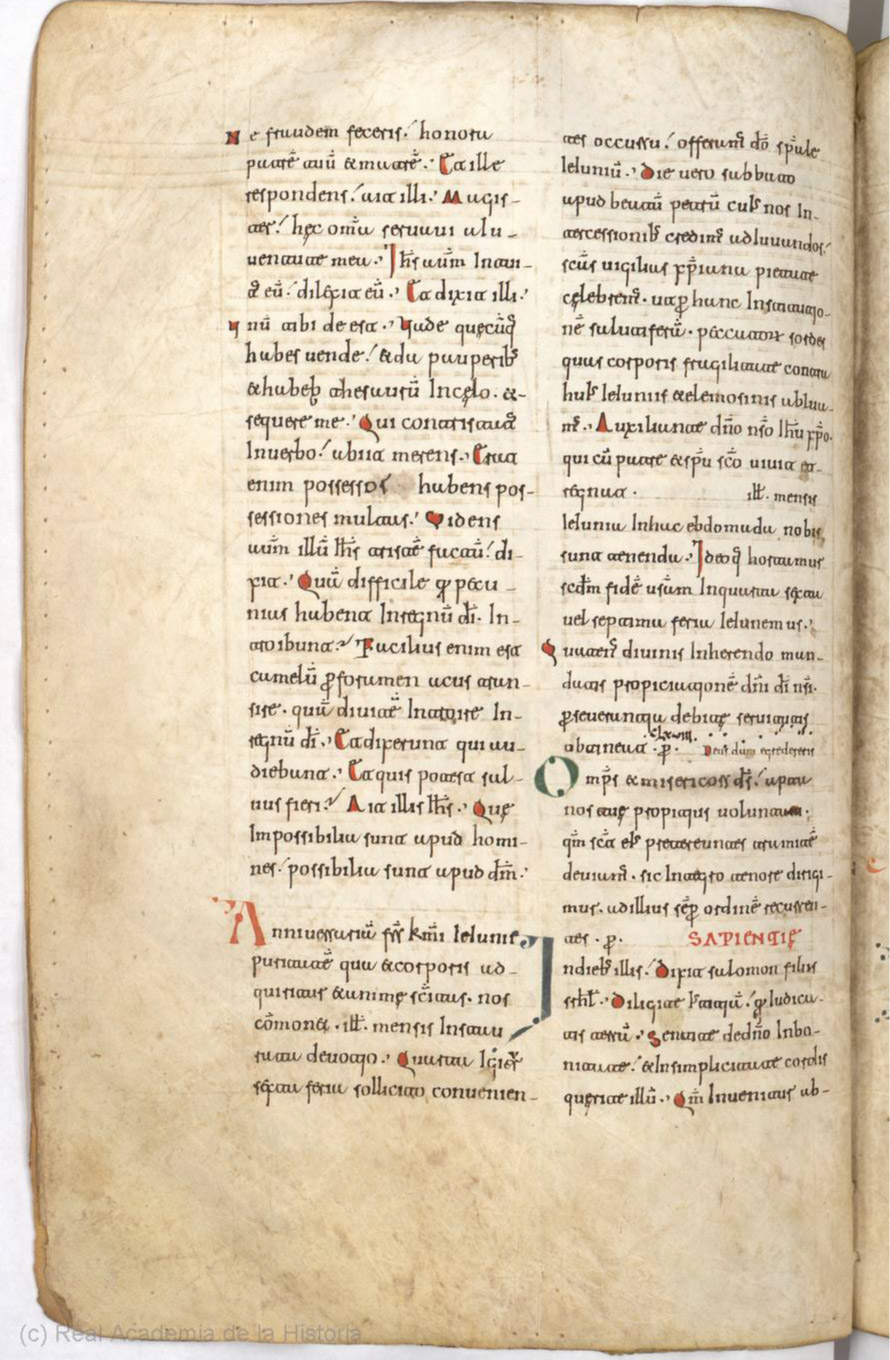 Ne fraudem feceris. honora
patrē tuū & matrē. Et ille
respondens. ait illi. Magis-
ter. hęc om̄a servavi a iu-
ventute mea. Ih̄s autm̄ intui-
t̄ eū. dilexit eū. Et dixit illi.
unū tibi deest. Vade quecūq̄
habes vende. & da pauperib;
& habeb; thesaurū in cęlo. &-
sequere me. Qui contristat̄
in verbo. abiit merens. Erat
enim possessos habens pos-
sessiones multas. Videns
autm̄ illū ih̄s tristē factū. di-
xit. Quā difficile qui pecu-
nias habent in regnū dī. in-
troibunt. Facilius enim est
camelū p foramen acus tran-
sire. quā divitē intrare in-
regnū dī. Et dixerunt qui au-
diebant. Et quis potest sal-
vus fieri. Ait illis ih̄s. Que
impossibilia sunt apud homi-
nes. possibilia sunt apud dm̄.
Anniversariū frs̄ km̄i ieiunii
puritatē qua & corporis ad-
quiritur & anime sc̄itas. nos
cōmonet. ill̄. mensis instau-
rata devotio. Quarta igit̄
sexta feria solliciti convenien-
tes occursu. offeram̄ dō sp̄ale
ieiuniū. Die vero sabbato
apud beatū petrū cuī nos in-
tercessionib; credim̄ adiuvandos.
sc̄as vigilias xp̄iana pietate
celebrem̄. ut p hunc institutio-
nē salutiferā. peccator̄ sordes
quas corporis fragilitate contra
him̄ ieiuniis & elemosinis ablua-
m̄. Auxiliante dn̄o nr̄o ih̄u xp̄o.
qui cū patre & sp̄u sc̄o vivit et
regnat. ill̄. mensis
ieiunia in hac ebdomada nobis
sunt tenenda. Ideoq̄ hortamur
scdm̄ fidē vr̄am in quarta sexta
vel septima feria ieiunemus.
Quaten̄ divinis inherendo man-
datis propiciationē dn̄i dī nr̄i.
p severantia debite servitutis
obtineat. p. Deus dum egrederetis
Omp̄s & misericors ds̄. apta
nos tuę propitius voluntati.
qm̄ sc̄a eī pretereuntes tramitē
deviam̄. sic integro tenore dirigi-
mur. ad illius sēp ordinē recurren-
tes. p. SAPIENTIĘ
In dieb; illis. Dixit salomon filiis
isrl̄. Diligite iustitiā. qui iudica-
tis terrā. Sentite de dn̄o in bo-
nitate. & in simplicitate cordis
querite illū. Qm̄ invenitur ab-